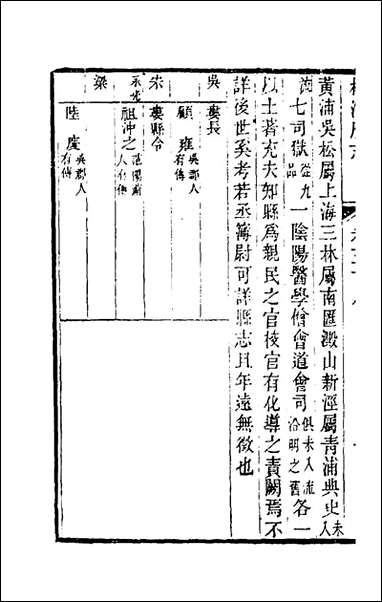 黃浦吳松屬上海三林屬南匯澱山新涇屬青浦典史未入
流七司獄從九品一陰陽醫學僧會道會司俱未入流沿明之舊各一
以土著充夫知縣爲親民之官校官有化導之責闕焉不
詳後世奚考若丞簿尉可詳縣志且年遠無徵也
吳 婁長
顧雍吳郡人有傳
宋 婁縣令
永光 祖沖之范陽薊人有傳
梁
陸慶吳郡人有傳